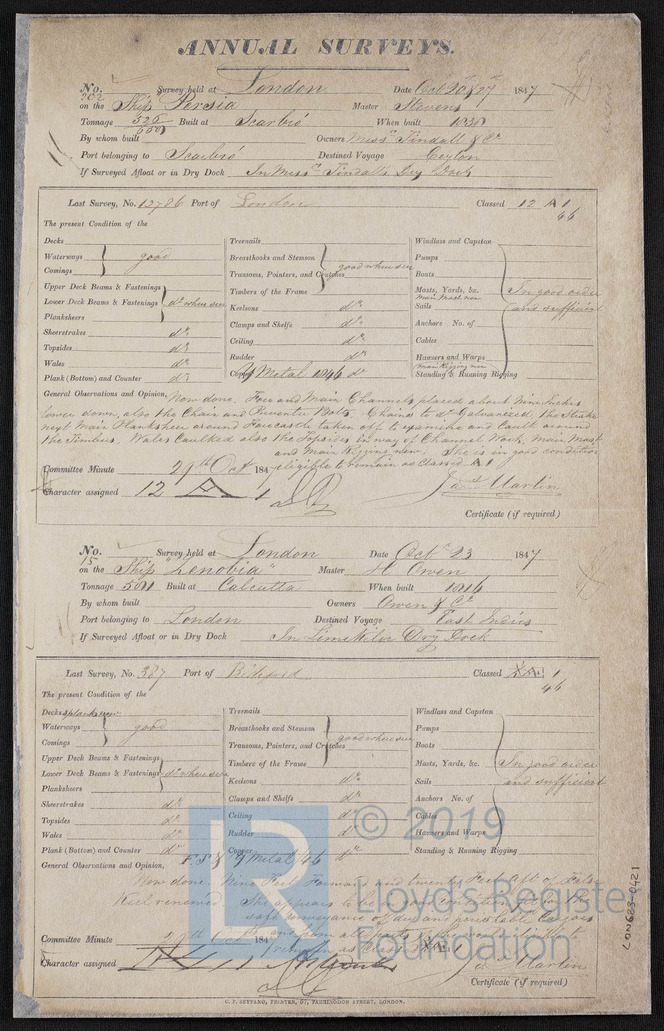 ANNUAL SURVEYS.
No. 202 Survey held at London Date Oct 20 & 27 1847
on the Ship Persia Master Stevens
Tonnage 526 Built at Scarbro When built
By whom built Owners Messrs Tindall & Co
Port belonging to Scarbro Destined Voyage Ceylon
If Surveyed Afloat or in Dry Dock In Messrs Tindall's Dry Dock
Last Survey, No. 12786 Port of London Classed 12 A 1
46
The present Condition of the
Decks Treenails Windlass and Capstan
Waterways good Breasthooks and Stemson good where seen Pumps
Comings Transoms, Pointers, and Crutches Boats
Upper Deck Beams & Fastenings Timbers of the Frame Masts, Yards, &c. In good order
Main Mast new
Lower Deck Beams & Fastenings do where seen Keelsons do Sails and sufficient
Planksheers Clamps and Shelfs do Anchors No. of
Sheerstrakes do Ceiling do Cables
Topsides do Rudder do Hawsers and Warps
Main Rigging new
Wales do Copper Y Metal 1846 do Standing & Running Rigging
Plank (Bottom) and Counter do
General Observations and Opinion, Now done. Fore and Main Channels placed about Nine Inches
lower down, also the Chain and Preventer Bolts, Chains to do Galvanized, the Strake
next Main Planksheer around Forecastle taken off to examine and Caulk around
the Timbers. Wales Caulked also the Topsides in way of Channel Work, Main Mast
and Main Rigging new. She is in good condition
Committee Minute 29th Oct 1847 eligible to remain as classed A 1
Character assigned 12 A 1 Jas Martin
Certificate (if required)
No. 15 Survey held at London Date Octr 23 1847
on the Ship "Zenobia" Master H Owen
Tonnage Built at Calcutta When built
By whom built Owners Owen & Co
Port belonging to London Destined Voyage East Indies
If Surveyed Afloat or in Dry Dock In Limekiln Dry Dock
Last Survey, No. 387 Port of Bideford Classed 1
46
The present Condition of the
Decks Treenails Windlass and Capstan
Waterways good Breasthooks and Stemson good where seen Pumps
Comings Transoms, Pointers, and Crutches Boats
Upper Deck Beams & Fastenings Timbers of the Frame Masts, Yards, &c. In good order
Lower Deck Beams & Fastenings do where seen Keelsons do Sails and sufficient
Planksheers Clamps and Shelfs do Anchors No. of
Sheerstrakes do Ceiling do Cables
Topsides do Rudder do Hawsers and Warps
Wales do Copper Y Metal 46 do Standing & Running Rigging
Plank (Bottom) and Counter do
General Observations and Opinion,
Now done. Nine Feet Forward and twenty Feet Aft of False
Keel renewed. She appears to be in good condition fit for the
safe conveyance of dry and perishable Cargoes
to and from all parts & eligible to
Committee Minute Oct 1847 remain as Classed 1
Character assigned Jas Martin
Certificate (if required)
C. F. SEYFANG, PRINTER, 57, FARRINGDON STREET, LONDON.
LON683-0421
© 2019
Lloyd's Register
Foundation